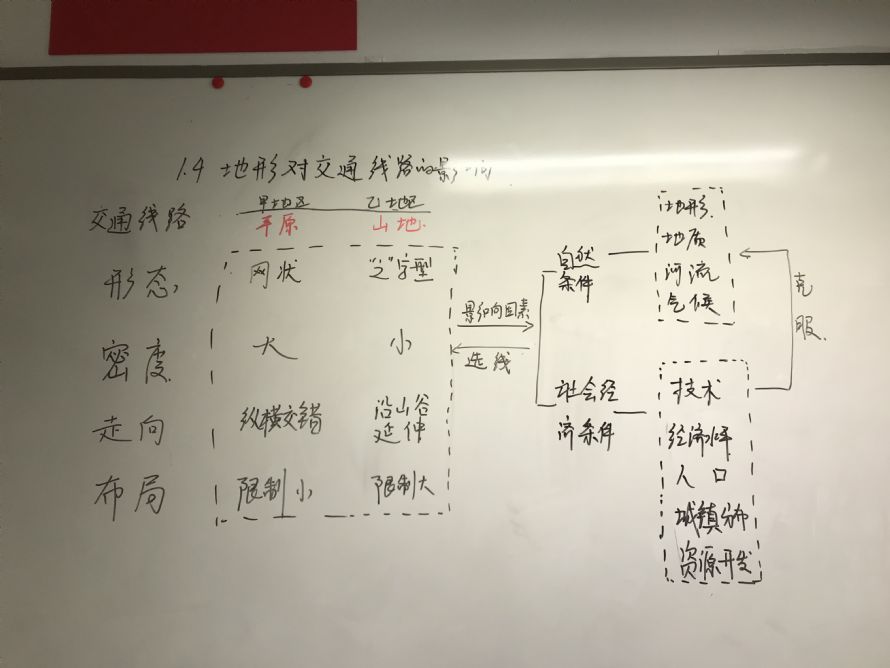 1.4 地形对交通线路的影响
甲地区 乙地区
交通线路 平原 山地
形态 网状 “之”字型
密度 大 小
走向 纵横交错 沿山谷
延伸
布局 限制小 限制大
影响因素
选线
自然
条件
社会经
济条件
地形
地质
河流
气候
技术
经济水平
人口
城镇分布
资源开发
克
服